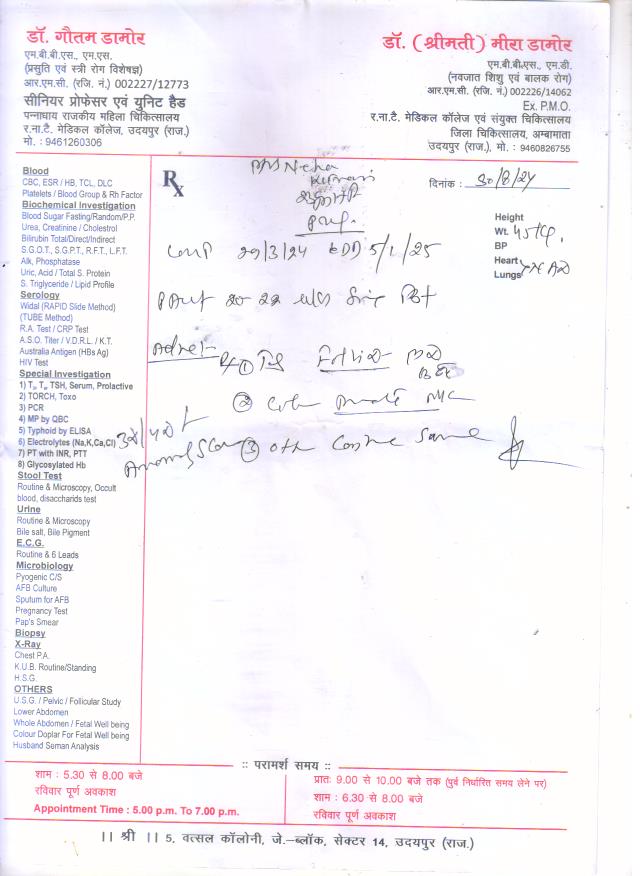 डॉ. गौतम डामोर
एम.बी.बी.एस., एम.एस.
(प्रसुति एवं स्त्री रोग विशेषज्ञ)
आर.एम.सी. (रजि. नं.) 002227/12773
सीनियर प्रोफेसर एवं युनिट हैड
पन्नाधाय राजकीय महिला चिकित्सालय
र.ना.टै. मेडिकल कॉलेज, उदयपुर (राज.)
मो. : 9461260306
डॉ. (श्रीमती) मीरा डामोर
एम.बी.बी.एस., एम.डी.
(नवजात शिशु एवं बालक रोग)
आर.एम.सी. (रजि. नं.) 002226/14062
Ex. P.M.O.
र.ना.टै. मेडिकल कॉलेज एवं संयुक्त चिकित्सालय
जिला चिकित्सालय, अम्बामाता
उदयपुर (राज.), मो. : 9460826755
Blood
CBC, ESR / HB, TCL, DLC
Platelets / Blood Group & Rh Factor
Biochemical Investigation
Blood Sugar Fasting/Random/P.P.
Urea, Creatinine / Cholestrol
Bilirubin Total/Direct/Indirect
S.G.O.T., S.G.P.T., R.F.T., L.F.T.
Alk, Phosphatase
Uric, Acid / Total S. Protein
S. Triglyceride / Lipid Profile
Serology
Widal (RAPID Slide Method)
(TUBE Method)
R.A. Test / CRP Test
A.S.O. Titer / V.D.R.L. / K.T.
Australia Antigen (HBs Ag)
HIV Test
Special Investigation
1) T₃, T₄, TSH, Serum, Prolactive
2) TORCH, Toxo
3) PCR
4) MP by QBC
5) Typhoid by ELISA
6) Electrolytes (Na,K,Ca,Cl)
7) PT with INR, PTT
8) Glycosylated Hb
Stool Test
Routine & Microscopy, Occult
blood, disaccharids test
Urine
Routine & Microscopy
Bile salt, Bile Pigment
E.C.G.
Routine & 6 Leads
Microbiology
Pyogenic C/S
AFB Culture
Sputum for AFB
Pregnancy Test
Pap's Smear
Biopsy
X-Ray
Chest P.A.
K.U.B. Routine/Standing
H.S.G.
OTHERS
U.S.G. / Pelvic / Follicular Study
Lower Abdomen
Whole Abdomen / Fetal Well being
Colour Doplar For Fetal Well being
Husband Seman Analysis
Rx
Neha
Kumari
दिनांक : 30/8/24
Height
Wt. 45
BP
Heart
Lungs
LMP 29/3/24 EDD 5/1/25
Advice
②
Scan ③
:: परामर्श समय ::
शाम : 5.30 से 8.00 बजे
रविवार पूर्ण अवकाश
Appointment Time : 5.00 p.m. To 7.00 p.m.
प्रातः 9.00 से 10.00 बजे तक (पुर्व निर्धारित समय लेने पर)
शाम : 6.30 से 8.00 बजे
रविवार पूर्ण अवकाश
|| श्री || 5, वत्सल कॉलोनी, जे.–ब्लॉक, सेक्टर 14, उदयपुर (राज.)